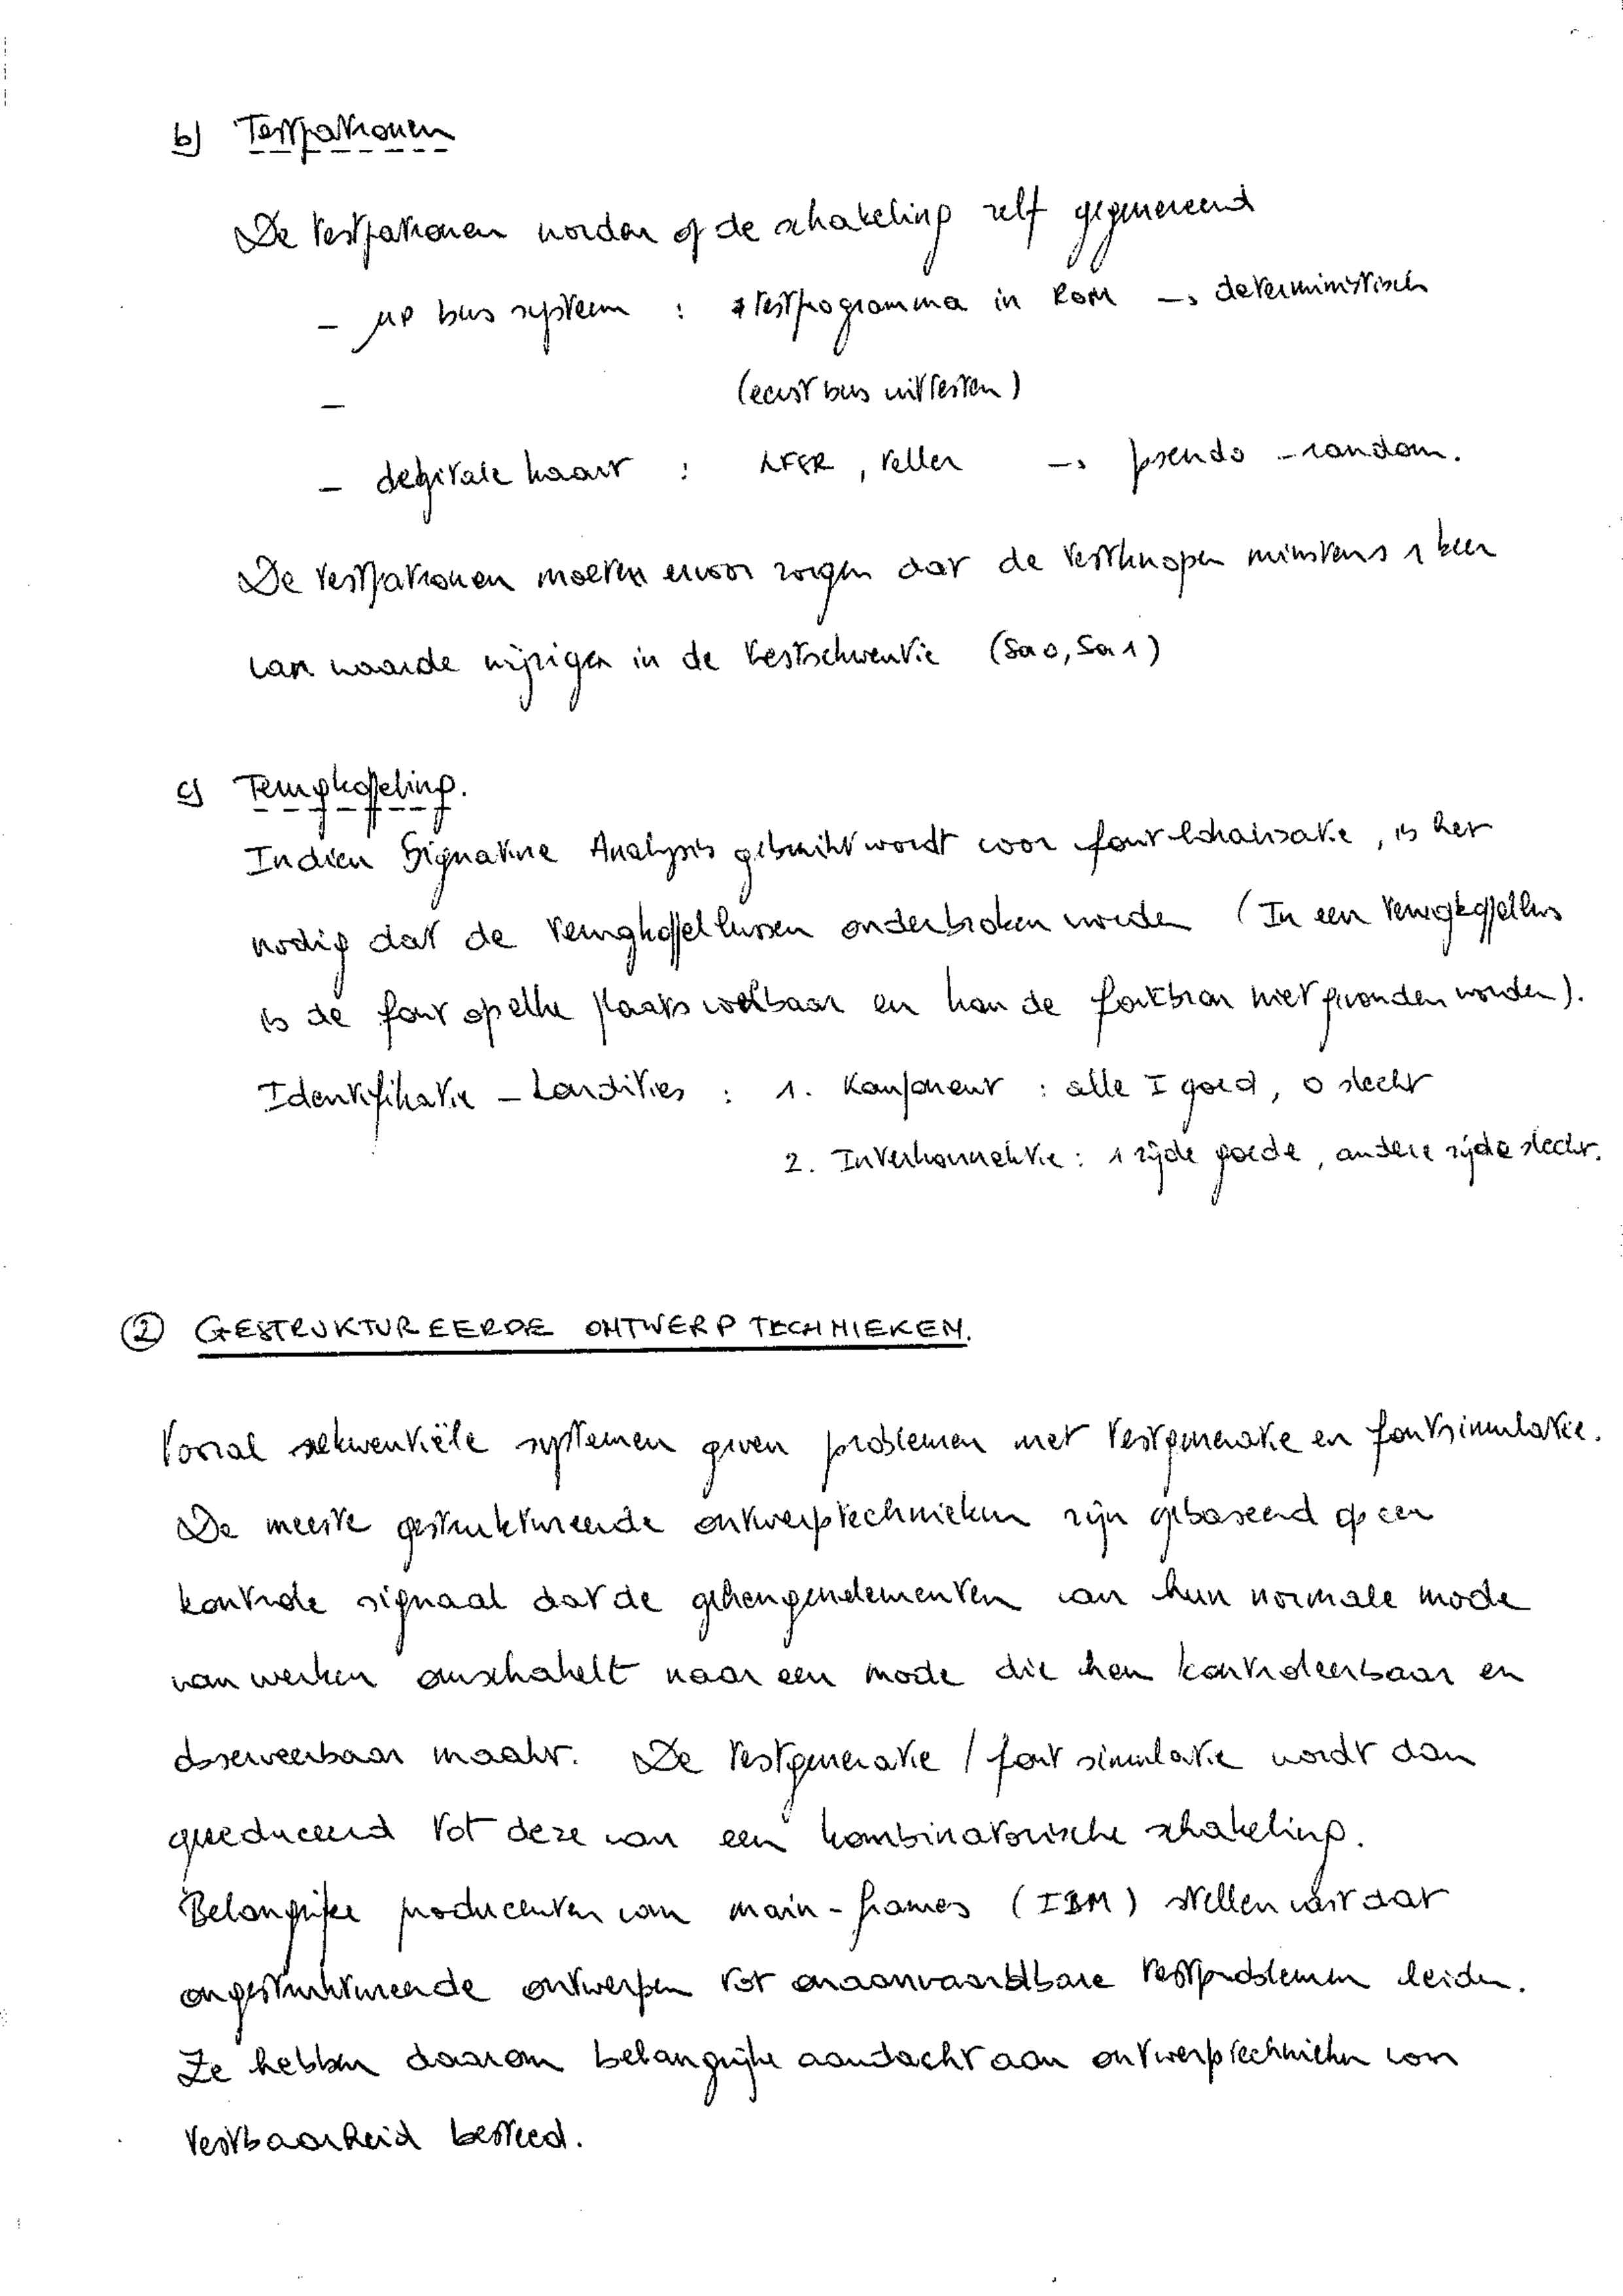 b) Testpatronen
De testpatronen worden op de schakeling zelf gegenereerd
- µP bus systeem : testprogramma in ROM → deterministisch
- (eerst bus uittesten)
- degitale kaart : LFSR, teller → pseudo-random.
De testpatronen moeten ervoor zorgen dat de testknopen minstens 1 keer
van waarde wijzigen in de testsekwentie (Sa0, Sa1)
c) Terugkoppeling.
Indien Signature Analysis gebruikt wordt voor foutlokalisatie, is het
nodig dat de terugkoppellussen onderbroken worden (In een terugkoppellus
is de fout op elke plaats voelbaar en kan de foutbron niet gevonden worden).
Identifikatie - kondities : 1. Komponent : alle I goed, O slecht
2. Interkonnektie : 1 zijde goede, andere zijde slecht.
② GESTRUKTUREERDE ONTWERPTECHNIEKEN.
Vooral sekwentiële systemen geven problemen met testgeneratie en foutsimulatie.
De meeste gestruktureerde ontwerptechnieken zijn gebaseerd op een
kontrole signaal dat de geheugenelementen van hun normale mode
van werken omschakelt naar een mode die hen kontroleerbaar en
observeerbaar maakt. De testgeneratie / fout simulatie wordt dan
gereduceerd tot deze van een kombinatorische schakeling.
Belangrijke producenten van main-frames (IBM) stellen vast dat
ongestruktureerde ontwerpen tot onaanvaardbare testproblemen leiden.
Ze hebben daarom belangrijke aandacht aan ontwerptechnieken voor
testbaarheid besteed.